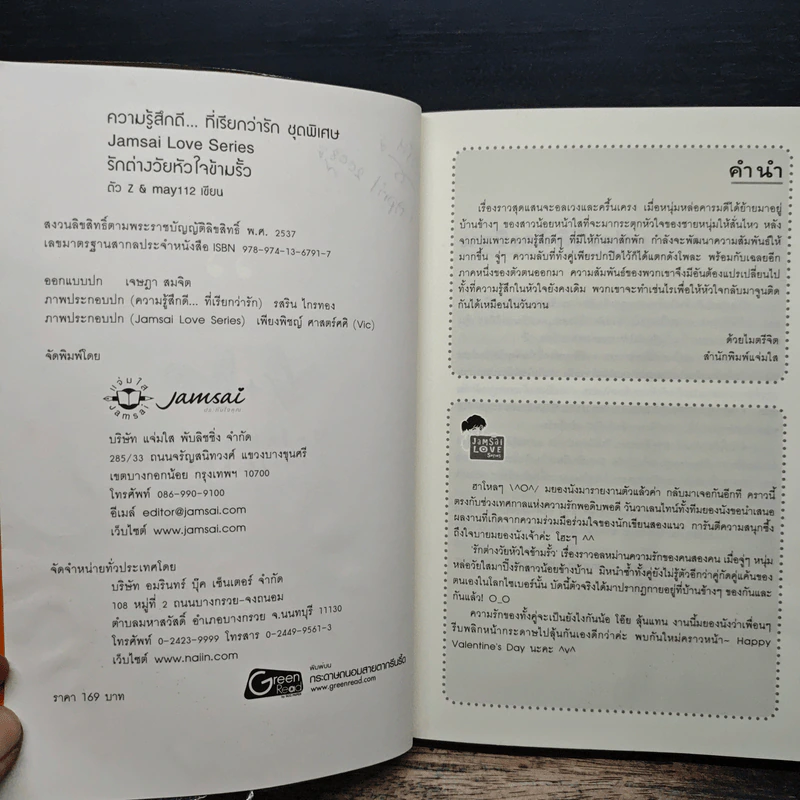 ความรู้สึกดี... ที่เรียกว่ารัก ชุดพิเศษ
Jamsai Love Series
รักต่างวัยหัวใจข้ามรั้ว
ตัว Z & may112 เขียน
สงวนลิขสิทธิ์ตามพระราชบัญญัติลิขสิทธิ์ พ.ศ. 2537
เลขมาตรฐานสากลประจำหนังสือ ISBN 978-974-13-6791-7
ออกแบบปก เจษฎา สมจิต
ภาพประกอบปก (ความรู้สึกดี... ที่เรียกว่ารัก) รสริน ไกรทอง
ภาพประกอบปก (Jamsai Love Series) เพียงพิชญ์ ศาสตร์ศศิ (Vic)
จัดพิมพ์โดย
แจ่มใส
Jamsai
Jamsai
บริษัท แจ่มใส พับลิชชิ่ง จำกัด
285/33 ถนนจรัญสนิทวงศ์ แขวงบางขุนศรี
เขตบางกอกน้อย กรุงเทพฯ 10700
โทรศัพท์ 086-990-9100
อีเมล์ editor@jamsai.com
เว็บไซต์ www.jamsai.com
จัดจำหน่ายทั่วประเทศโดย
บริษัท อมรินทร์ บุ๊ค เซ็นเตอร์ จำกัด
108 หมู่ที่ 2 ถนนบางกรวย-จงถนอม
ตำบลมหาสวัสดิ์ อำเภอบางกรวย จ.นนทบุรี 11130
โทรศัพท์ 0-2423-9999 โทรสาร 0-2449-9561-3
เว็บไซต์ www.naiin.com
ราคา 169 บาท
Green Read
พิมพ์บน
กระดาษถนอมสายตากรีนรี้ด
www.greenread.com
คำนำ
เรื่องราวสุดแสนจะอลเวงและครื้นเครง เมื่อหนุ่มหล่อคารมดีได้ย้ายมาอยู่
บ้านข้างๆ ของสาวน้อยหน้าใสที่จะมากระตุกหัวใจของชายหนุ่มให้สั่นไหว หลัง
จากบ่มเพาะความรู้สึกดีๆ ที่มีให้กันมาสักพัก กำลังจะพัฒนาความสัมพันธ์ให้
มากขึ้น จู่ๆ ความลับที่ทั้งคู่เพียรปกปิดไว้ก็ได้แตกดังโพละ พร้อมกับเฉลยอีก
ภาคหนึ่งของตัวตนออกมา ความสัมพันธ์ของพวกเขาจึงมีอันต้องแปรเปลี่ยนไป
ทั้งที่ความรู้สึกในหัวใจยังคงเดิม พวกเขาจะทำเช่นไรเพื่อให้หัวใจกลับมาจูนติด
กันได้เหมือนในวันวาน
ด้วยไมตรีจิต
สำนักพิมพ์แจ่มใส
Jamsai
LOVE
Series
ฮาโหลๆ \^O^/ มยองนังมารายงานตัวแล้วค่า กลับมาเจอกันอีกที คราวนี้
ตรงกับช่วงเทศกาลแห่งความรักพอดิบพอดี วันวาเลนไทน์ทั้งทีมยองนังขอนำเสนอ
ผลงานที่เกิดจากความร่วมมือร่วมใจของนักเขียนสองแนว การันตีความสนุกซึ้ง
ถึงใจบายมยองนังเจ้าค่ะ โฮะๆ ^^
'รักต่างวัยหัวใจข้ามรั้ว' เรื่องราวอลหม่านความรักของคนสองคน เมื่อจู่ๆ หนุ่ม
หล่อวัยใสมาปิ๊งรักสาวน้อยข้างบ้าน มิหนำซ้ำทั้งคู่ยังไม่รู้ตัวอีกว่าคู่กัดคู่แค้นของ
ตนเองในโลกไซเบอร์นั้น บัดนี้ตัวจริงได้มาปรากฏกายอยู่ที่บ้านข้างๆ ของกันและ
กันแล้ว! O_O
ความรักของทั้งคู่จะเป็นยังไงกันน้อ โอ๊ย ลุ้นแทน งานนี้มยองนังว่าเพื่อนๆ
รีบพลิกหน้ากระดาษไปลุ้นกันเองดีกว่าค่ะ พบกันใหม่คราวหน้า~ Happy
Valentine's Day นะคะ ^v^